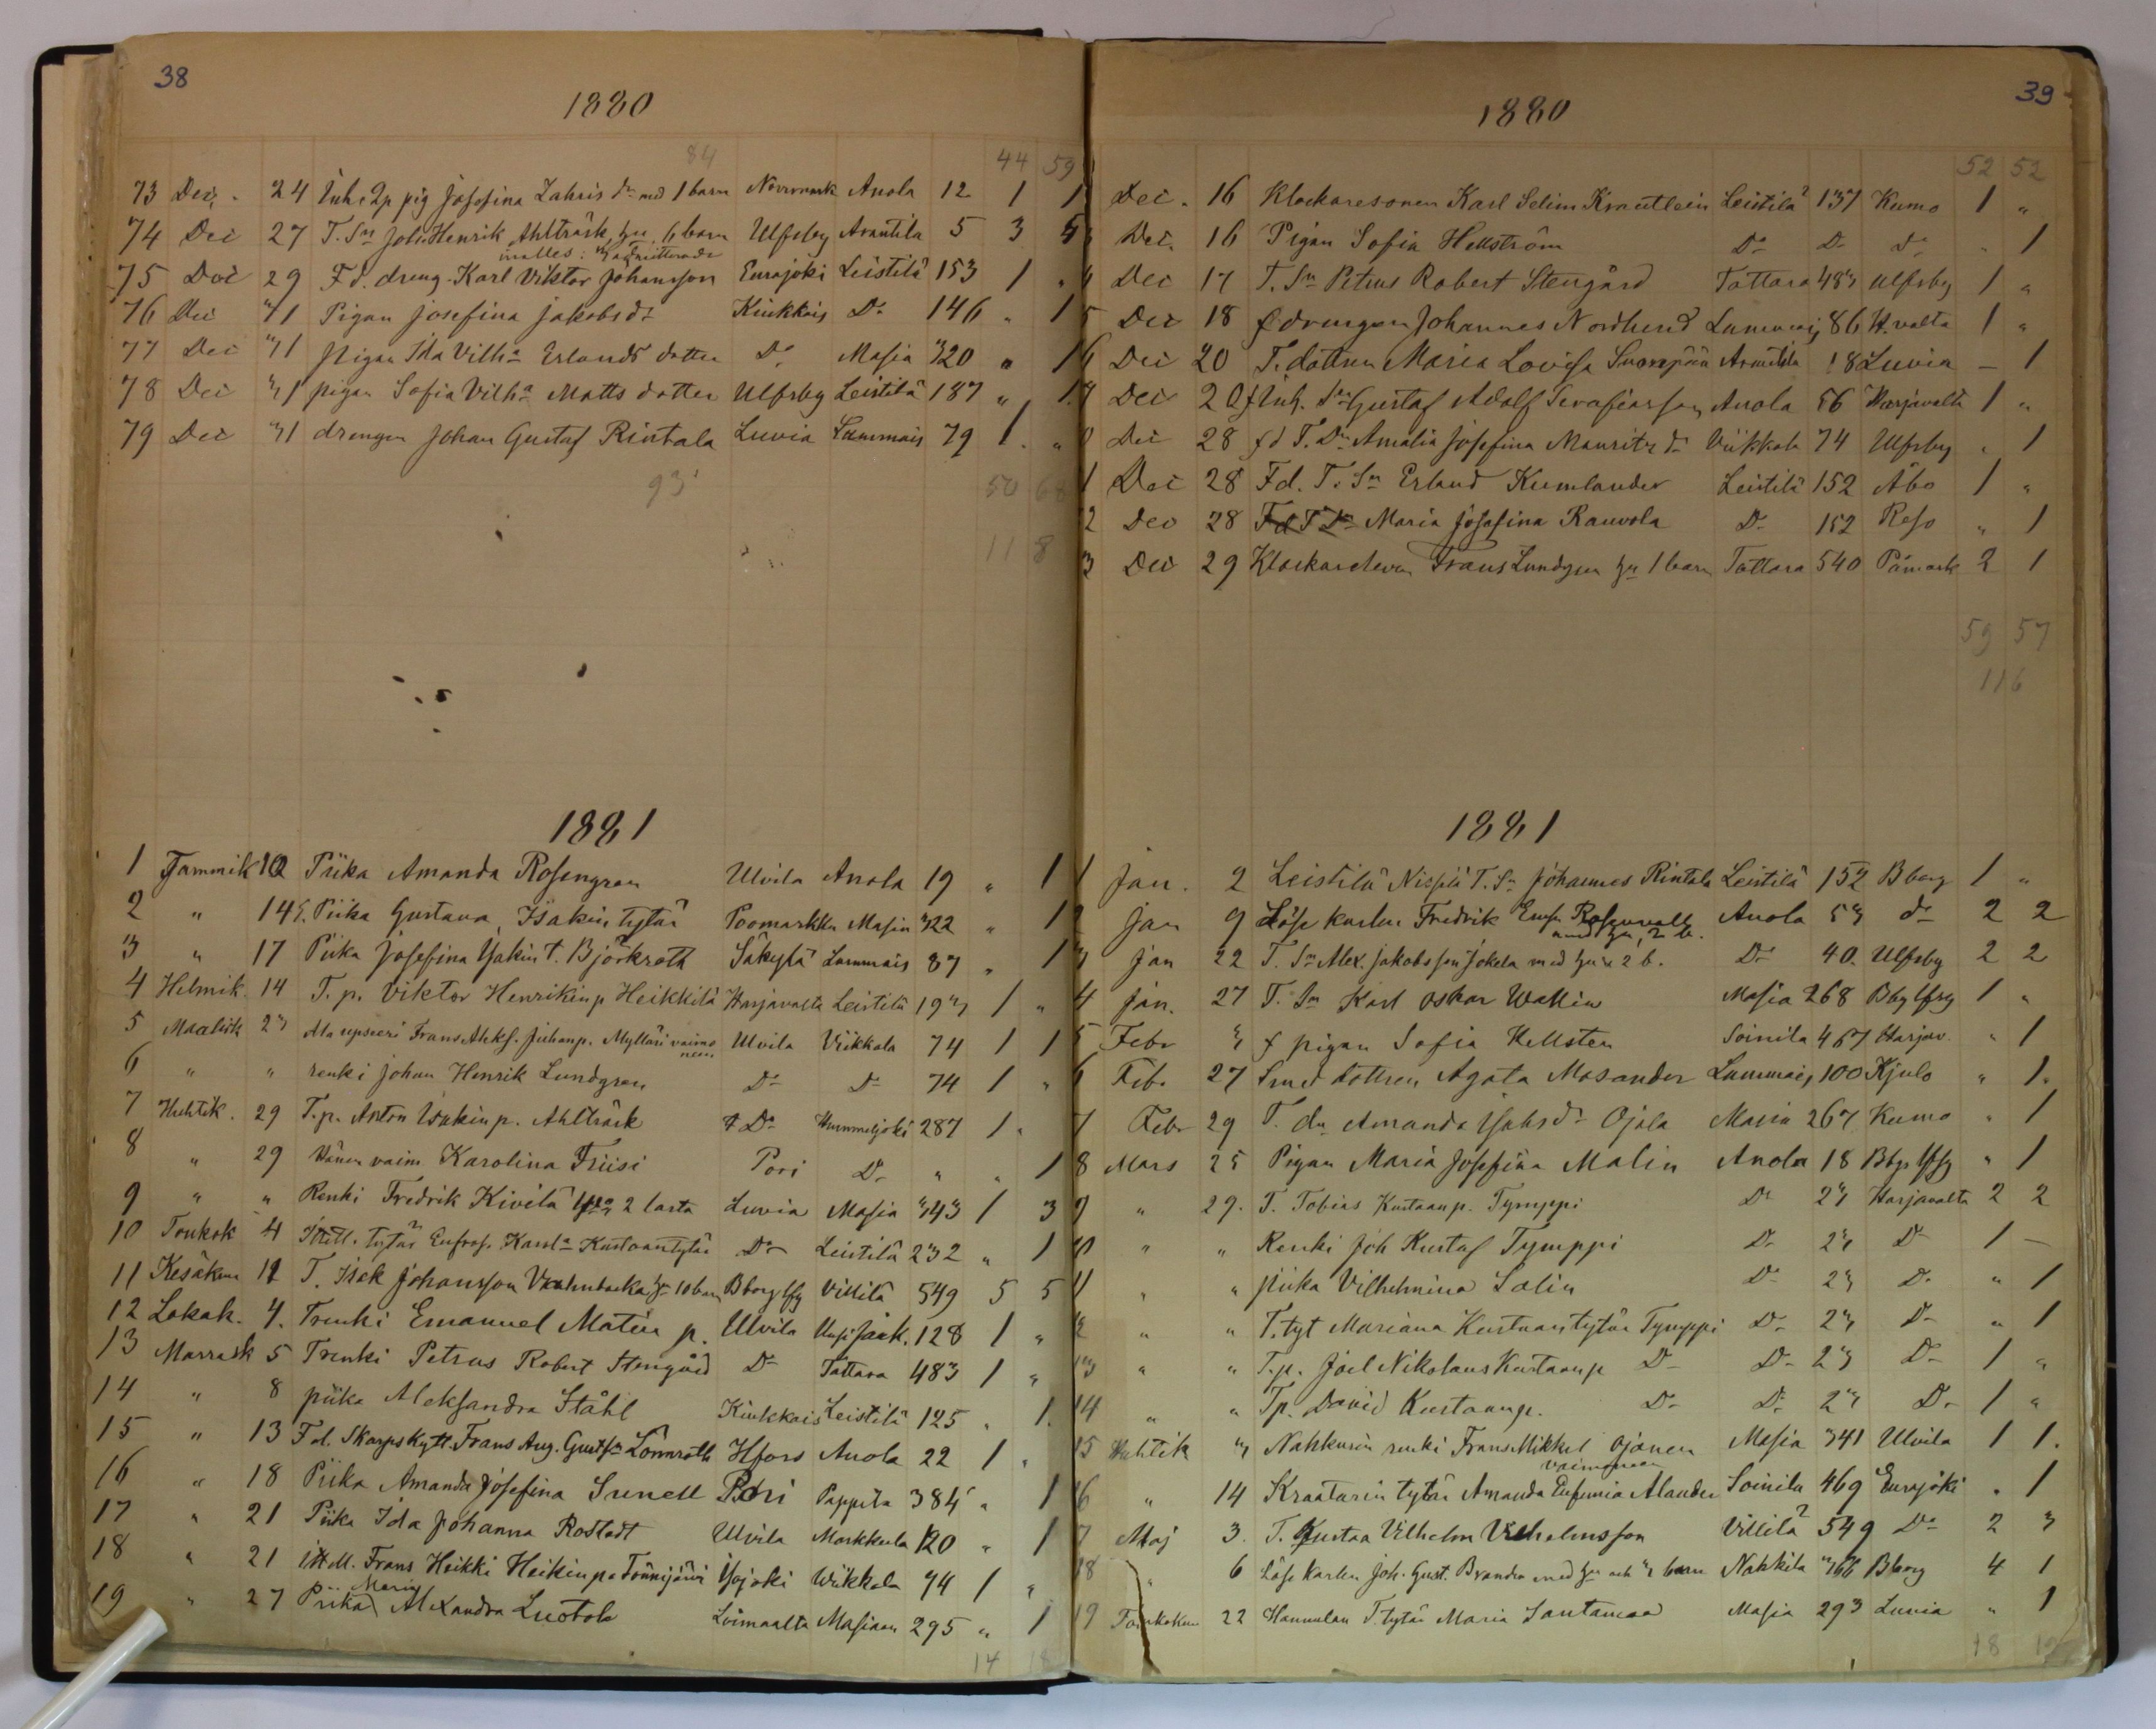 38
1880
84 44 59
73 Dec. 24 Inh. Qp pig Josefina Zahris dr med 1 barn Norrmark Anola 12 1 1
74 Dec 27 T. Sn Joh. Henrik Ahlträsk hu 6 barn Ulfsby Avantila 5 3 5
75 Dec 29 Fd. dreng. Karl Viktor Johansson Eurajoki Leistilä 153 1 "
76 Dec 31 Pigan Josefina Jakobsdr Kiukkais Do 146 " 1
77 Dec 31 pigan Ida Vilha Erlands dotter Do Masia 320 " 1
78 Dec 31 pigan Sofia Vilha Matts dotter Ulfsby Leistilä 187 " 1
79 Dec 31 drengen Johan Gustaf Rintala Luvia Lammais 79 1 "
93 50 68
11 8
1881
1 Tammik 10 Piika Amanda Rosengren Ulvila Anola 19 " 1
2 " 14 E. Piika Gustava Isakin tytär Poomarkku Masia 322 " 1
3 " 17 Piika Josefina Isakin t. Björkroth Säkylä Lammais 87 " 1
4 Helmik. 14 T. p. Viktor Henrikin p Heikkilä Harjavalta Leistilä 193 1 "
5 Maalisk 23 Ala upseeri Frans Aleks. Juhanp. Mylläri vaimo neen Ulvila Viikkala 74 1 1
6 " " renki Johan Henrik Lundgren Do Do 74 1 "
7 Huhtik. 29 T. p. Anton Isakin p. Ahlträsk Do Hummeljoki 287 1 "
8 " 29 Hänen vaim Karolina Friisi Pori Do " " 1
9 " " Renki Fredrik Kivelä 2 lasta Luvia Masia 343 1 3
10 Toukok 4 Itsell. tytär Eufros. Karola Kustaantytär Do Leistilä 232 " 1
11 Kesäkuu 12 T. Isak Johansson hu 10 barn Bborg lfg Villilä 549 5 5
12 Lokak. 4. Trenki Emanuel Matin p. Ulvila 128 1 "
13 Marrask 5 Trenki Petrus Robert Stengård Do Tattara 483 1 "
14 " 8 piika Aleksandra Ståhl Kiukkais Leistilä 125 " 1.
15 " 13 Fd. Skarpskytt. Frans Aug. Gustfsn Lönnroth Hfors Anola 22 1 "
16 " 18 Piika Amanda Josefina Sunell Pori Pappila 384 " 1
17 " 21 Piika Ida Johanna Rostedt Ulvila Markkula 120 " 1
18 " 21 itsell. Frans Heikki Heikinp. Tönnijärvi Yojoki Wiikkala 74 1 "
19 " 27 Piika Maria Alexandra Luotola Loimaalta Masiaan 295 " 1
14 18
39
1880
52 52
Dec. 16 Klockaresonen Karl Selim Krautlein Leistilä 137 Kumo 1 "
3 Dec. 16 Pigan Sofia Hellström Do Do do " 1
4 Dec 17 T. Sn Petrus Robert Stengård Tattara 483 Ulfsby 1 "
5 Dec 18 f drengen Johannes Nordlund Lammaij 86 H.valta 1 "
6 Dec 20 T. dottren Maria Lovisa Suompää Avantila 18 Luvia – 1
7 Dec 20 f Inh. Sn Gustaf Adolf Serafiasson Anola 56 Harjavalta 1 "
8 Dec 28 fd T. Dr Amalia Josefina Mauritz dr Viikkala 74 Ulfsby " 1
1 Dec 28 Fd. T. Sn Erland Kumlander Leistilä 152 Åbo 1 "
2 Dec 28 Fd T Dr Maria Josefina Rauvola Do 152 Reso " 1
3 Dec 29 Klockareleven Frans Lundgren hu 1 barn Tattara 540 Påmark 2 1
59 57
116
1881
1 Jan. 2 Leistilä Nissilä T. Sn Johannes Rintala Leistilä 152 Bborg 1 "
2 Jan 9 Löse karlen Fredrik Eman. Rosenvall med hu, 2 b. Anola 53 do 2 2
3 Jan 22 T. Sn Alex. Jakobsson Jokela med hu & 2 b. Do 40. Ulfsby 2 2
4 Jan. 27 T. Sn Karl Oskar Wallin Masia 268 Bbg lfsg 1 "
5 Febr 3 f pigan Sofia Hellsten Soinila 467 Harjav. " 1
6 Feb. 27 Smed dottren Agata Mosander Lammais 100 Kjulo " 1.
7 Febr 29 T. dr Amanda Isaksdr Ojala Masia 267 Kumo " 1
8 Mars 25 Pigan Maria Josefina Malin Anola 18 Bbgs lfsg " 1
9 " 29. T. Tobias Kustaan p. Tymppi Do 23 Harjavalta 2 2
10 " " Renki Joh Kustaf Tymppi Do 23 Do 1 –
11 " " piika Vilhelmina Salin Do 23 Do " 1
12 " " T. tyt Mariana Kustaan tytär Tymppi Do 23 Do " 1
13 " " T.p. Joel Nikolaus Kustaanp Do Do 23 Do 1 "
14 " " Tp. David Kustaanp. Do Do 23 Do 1 "
15 Huhtik 3 Nahkurin renki Frans Mikkel Ojanen vaimoneen Masia 341 Ulvila 1 1.
16 " 14 Kraatarin tytär Amanda Eufemia Alander Soinila 469 Eurajoki " 1
17 Maj 3. T. Kustaa Vilhelm Vilhelmsson Villilä 549 Do 2 3
18 " 6 Löse karlen Joh. Gust. Brander med hu och 3 barn Nahkela 366 Bborg 4 1
19 Toukokuu 22 Hannulan T. tytär Maria Santamaa Masia 293 Luvia " 1
18 19